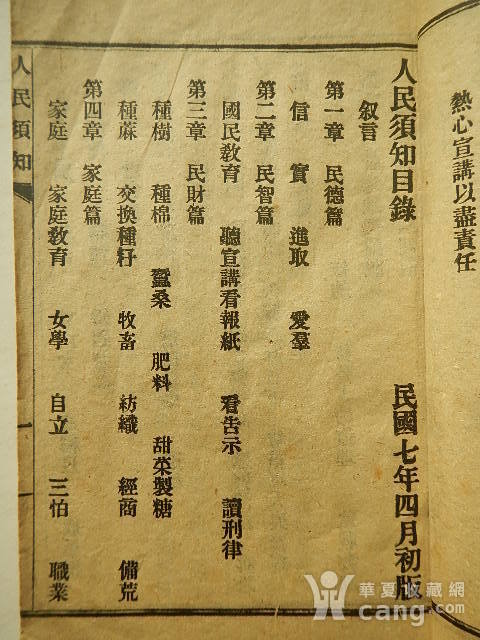 熱心宣講以盡責任
人民須知目錄 民國七年四月初版
叙言
第一章 民德篇
信實 進取 愛羣
第二章 民智篇
國民教育 聽宣講看報紙 看告示 讀刑律
第三章 民財篇
種樹 種棉 蠶桑 肥料 甜菜製糖
種蔴 交換種籽 牧畜 紡織 經商 備荒
第四章 家庭篇
家庭 家庭教育 女學 自立 三怕 職業
人民須知 一
華夏收藏網
cang.com